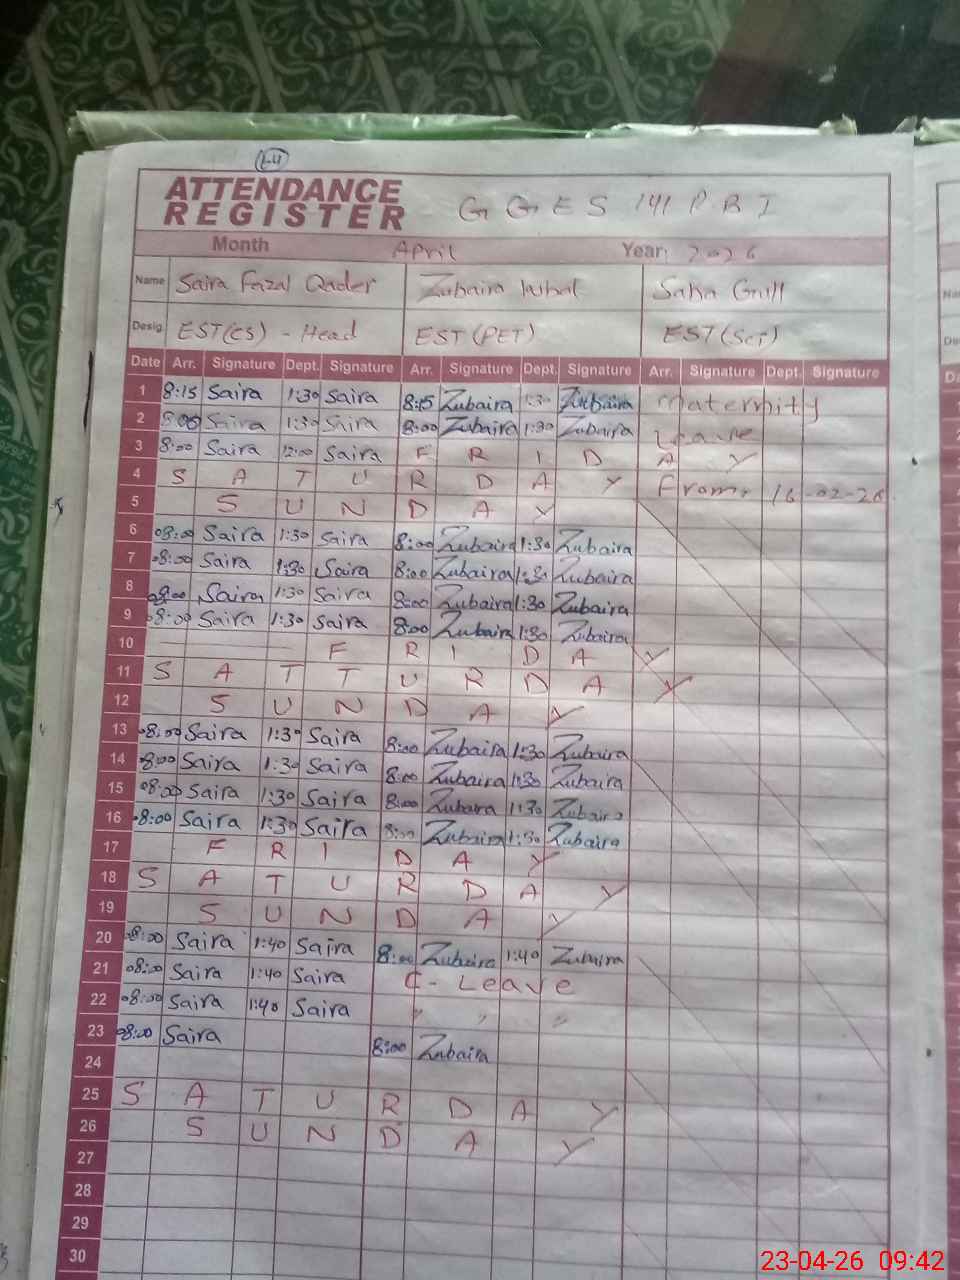 1-4
ATTENDANCE REGISTER G G E S 141 P B I
Month April Year: 2026
Name Saira Fazal Qader Zubaira Iqbal Saba Gull
Desig. EST(CS) - Head EST(PET) EST(Sci)
Date Arr. Signature Dept. Signature Arr. Signature Dept. Signature Arr. Signature Dept. Signature
1 8:15 Saira 1:30 Saira 8:15 Zubaira 1:30 Zubaira Maternity
2 8:00 Saira 1:30 Saira 8:00 Zubaira 1:30 Zubaira Leave
3 8:00 Saira 12:00 Saira F R I D A Y
4 S A T U R D A Y From, 16-02-26
5 S U N D A Y
6 08:00 Saira 1:30 Saira 8:00 Zubaira 1:30 Zubaira
7 08:00 Saira 1:30 Saira 8:00 Zubaira 1:30 Zubaira
8 08:00 Saira 1:30 Saira 8:00 Zubaira 1:30 Zubaira
9 08:00 Saira 1:30 Saira 8:00 Zubaira 1:30 Zubaira
10 F R I D A Y
11 S A T T U R D A Y
12 S U N D A Y
13 08:00 Saira 1:30 Saira 8:00 Zubaira 1:30 Zubaira
14 08:00 Saira 1:30 Saira 8:00 Zubaira 1:30 Zubaira
15 08:00 Saira 1:30 Saira 8:00 Zubaira 1:30 Zubaira
16 08:00 Saira 1:30 Saira 8:00 Zubaira 1:30 Zubaira
17 F R I D A Y
18 S A T U R D A Y
19 S U N D A Y
20 08:00 Saira 1:40 Saira 8:00 Zubaira 1:40 Zubaira
21 08:00 Saira 1:40 Saira C - Leave
22 08:00 Saira 1:40 Saira " " "
23 08:00 Saira 8:00 Zubaira
24
25 S A T U R D A Y
26 S U N D A Y
27
28
29
30
23-04-26 09:42